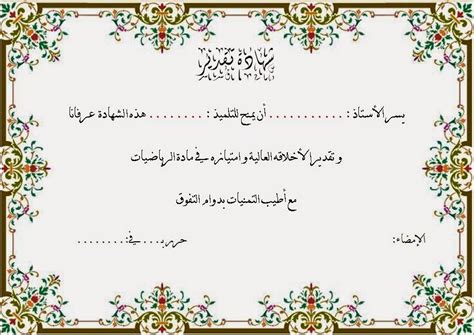 شهادة تقدير
يسر الأستاذ : . . . . . . . . . . . أن يمنح للتلميذ : . . . . . . . . هذه الشهادة عرفانا
و تقديرا لأخلاقه العالية و امتيازه في مادة الرياضيات
مع أطيب التمنيات بدوام التفوق
الإمضاء: حرر بـ... في: . . . . . . . .